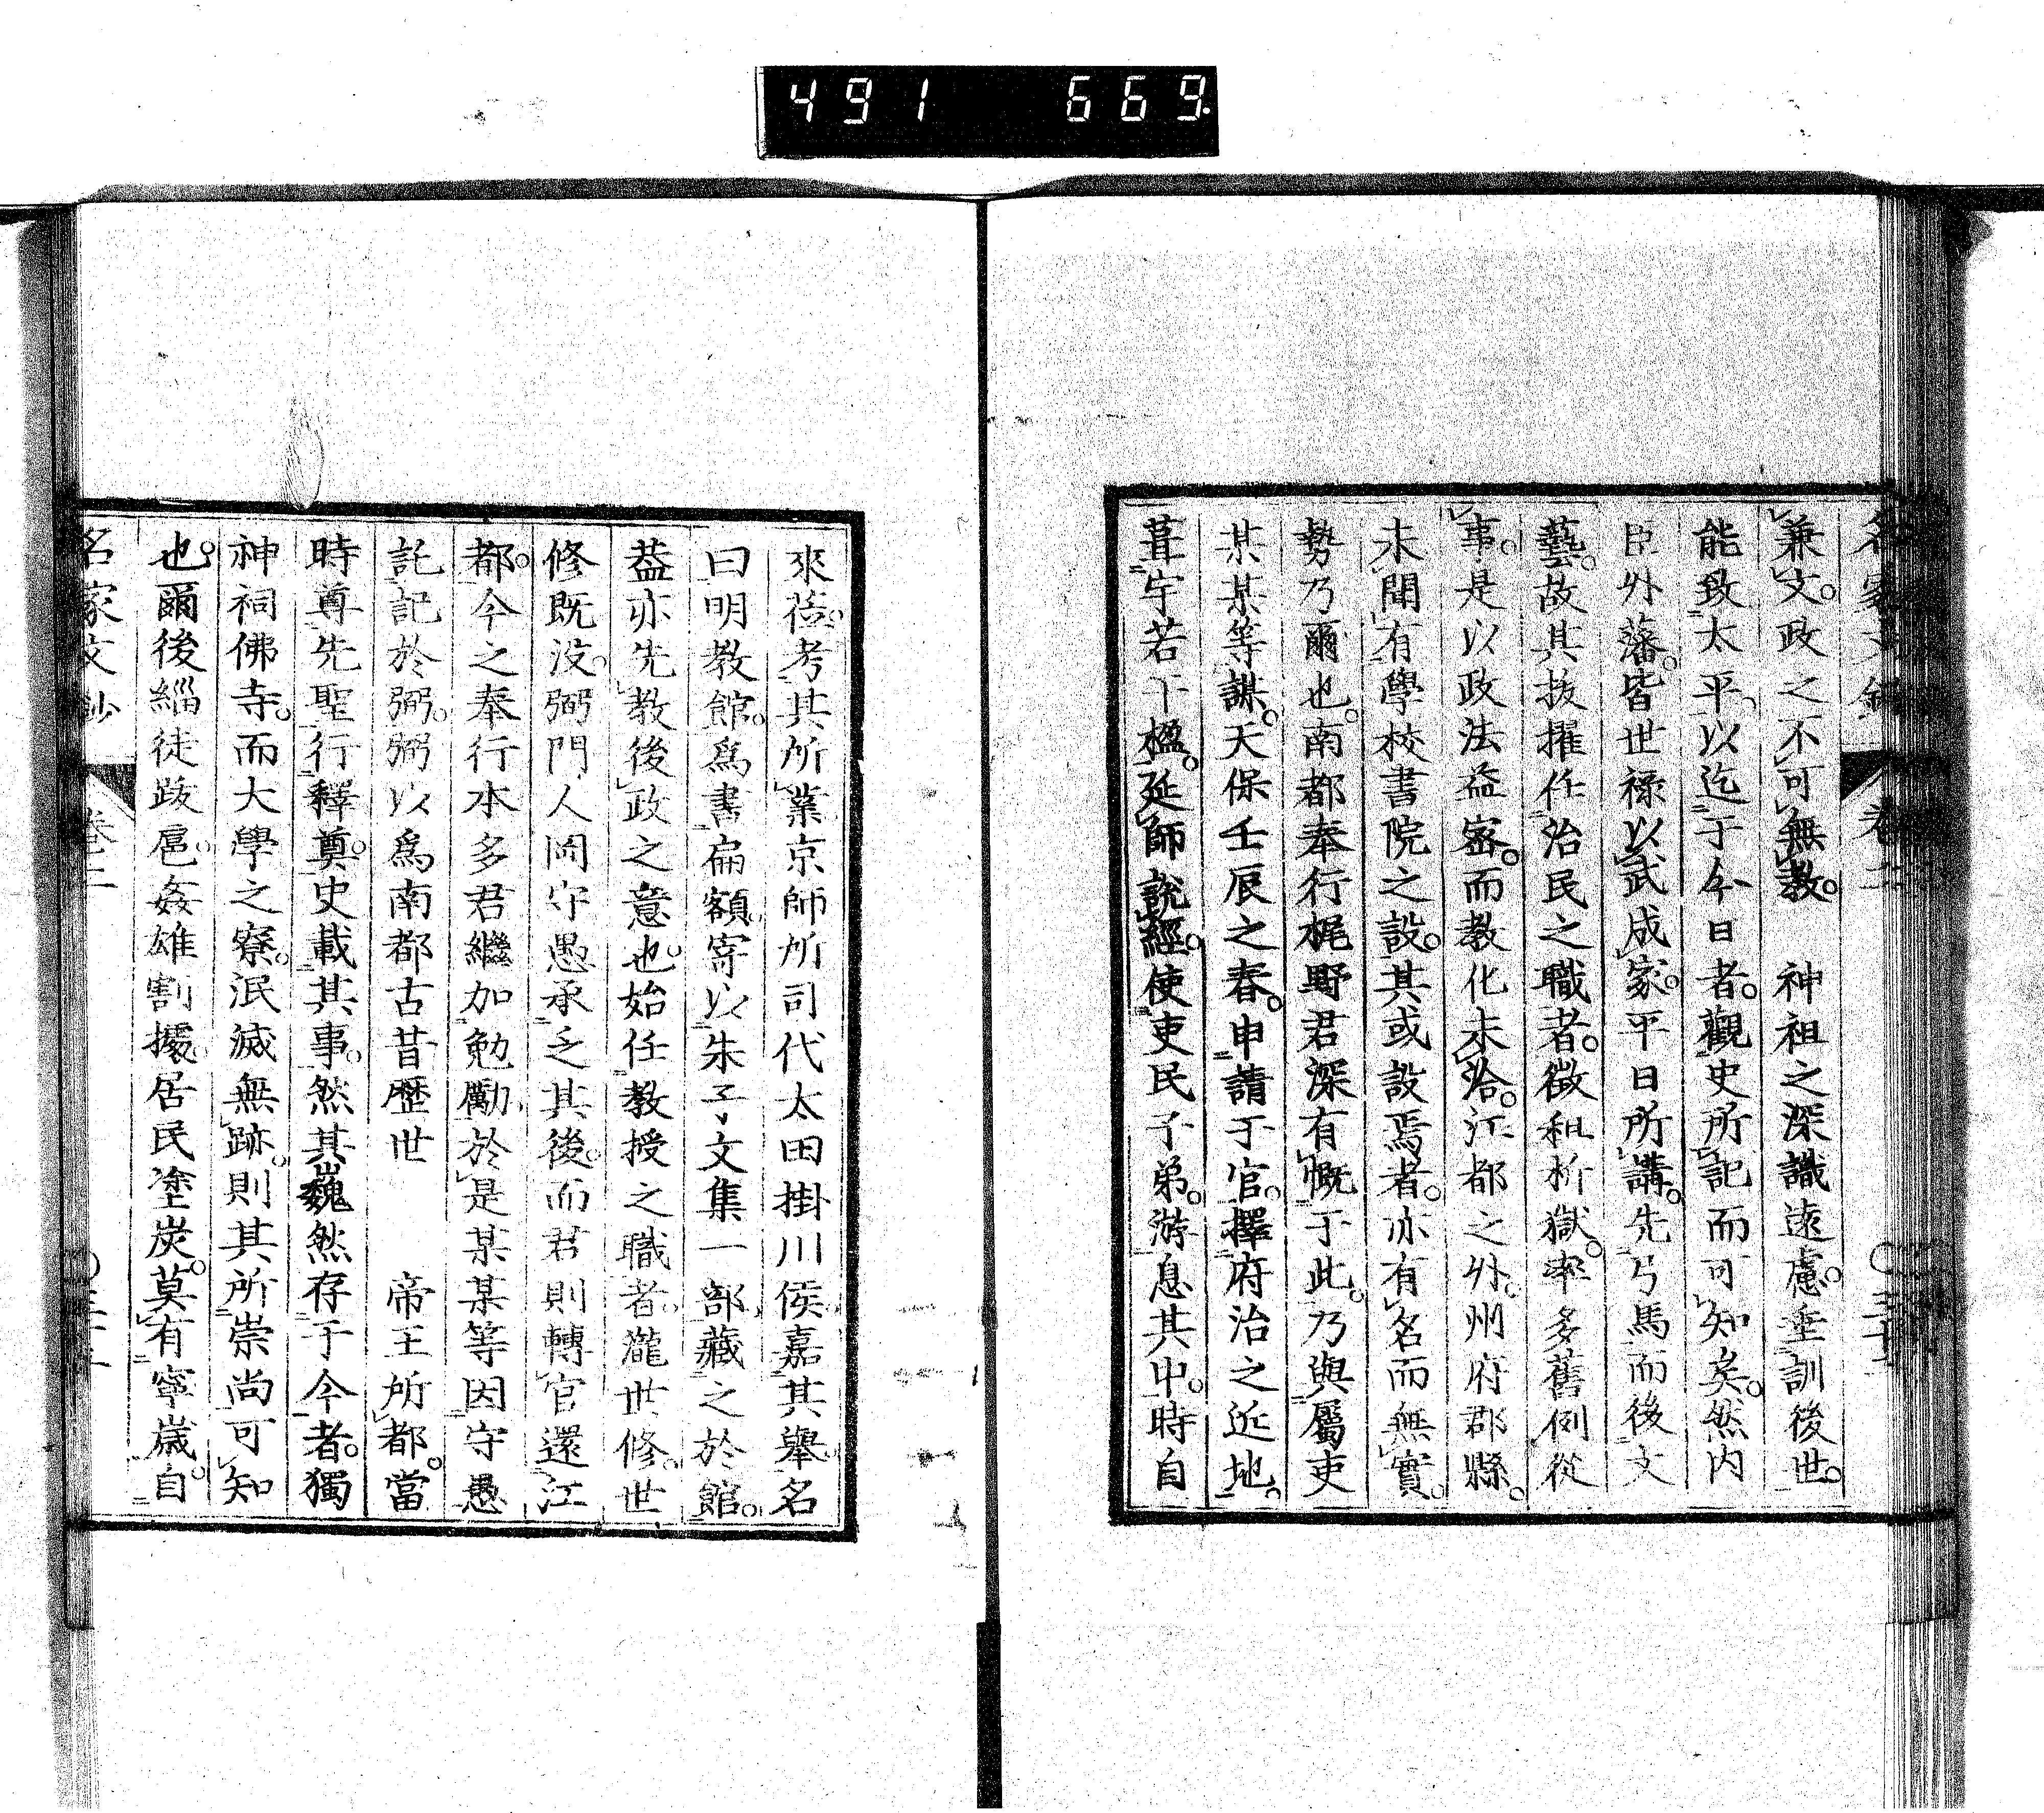 491 669.
兼文。政之不可無教。 神祖之深識遠慮。垂訓後世。
能致太平。以迄于今日者。觀史所記而可知矣。然内
臣外藩。皆世祿以武成家。平日所講。先弓馬而後文
藝。故其拔擢任治民之職者。徵租折獄。率多舊例從
事。是以政法益密。而教化未洽。江都之外。州府郡縣。
未聞有學校書院之設。其或設焉者。亦有名而無實。
勢乃爾也。南都奉行梶野君深有慨于此。乃與屬吏
某某等謀。天保壬辰之春。申請于官。擇府治之近地。
葺宇若干楹。延師說經。使吏民子弟。游息其中。時自
來莅。考其所業。京師所司代太田掛川侯嘉其舉。名
曰明教館。爲書扁額。寄以朱子文集一部。藏之於館。
葢亦先教後政之意也。始任教授之職者。瀧世修。世
修既沒。弼門人岡守愚承乏其後。而君則轉官還江
都。今之奉行本多君繼加勉勵。於是某某等因守愚
託記於弼。弼以爲南都古昔歷世 帝王所都。當
時尊先聖行釋奠。史載其事。然其巍然存于今者。獨
神祠佛寺。而大學之寮。泯滅無跡。則其所崇尚可知
也。爾後緇徒跋扈。姦雄割據。居民塗炭。莫有寧歲。自
名家文鈔 卷二